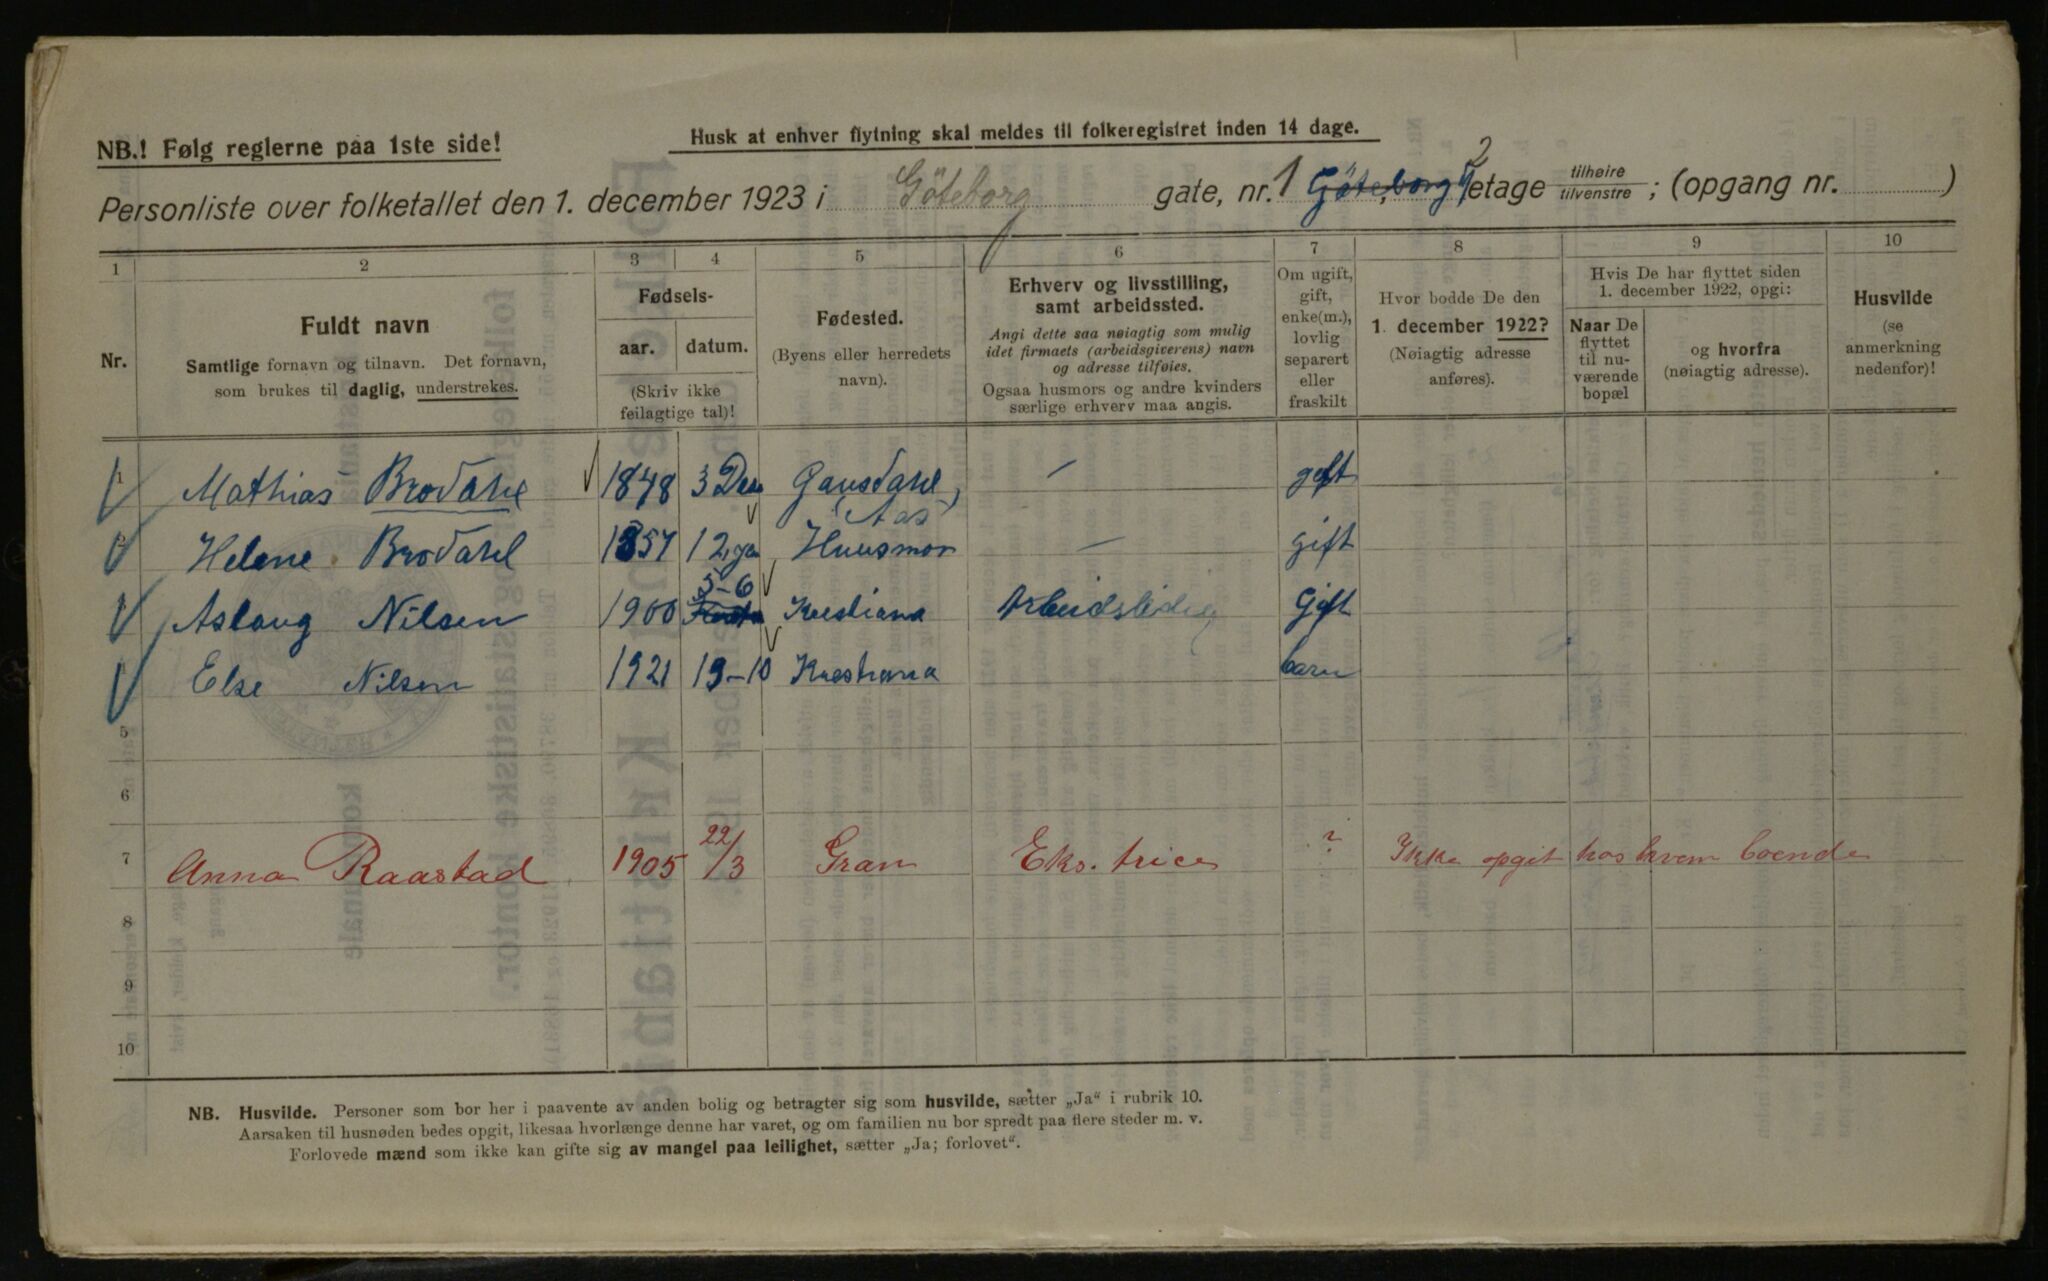 NB.! Følg reglerne paa 1ste side!
Husk at enhver flytning skal meldes til folkeregistret inden 14 dage.
Personliste over folketallet den 1. december 1923 i Göteborg gate, nr. 1 Göteborg 2 etage tilhøire tilvenstre ; (opgang nr. )
1 2 3 4 5 6 7 8 9 10
Nr.
Fuldt navn
Samtlige fornavn og tilnavn. Det fornavn,
som brukes til daglig, understrekes.
Fødsels-
aar. datum.
(Skriv ikke
feilagtige tal)!
Fødested.
(Byens eller herredets
navn).
Erhverv og livsstilling,
samt arbeidssted.
Angi dette saa nøiagtig som mulig
idet firmaets (arbeidsgiverens) navn
og adresse tilføies.
Ogsaa husmors og andre kvinders
særlige erhverv maa angis.
Om ugift,
gift,
enke(m.),
lovlig
separert
eller
fraskilt
Hvor bodde De den
1. december 1922?
(Nøiagtig adresse
anføres).
Hvis De har flyttet siden
1. december 1922, opgi:
Naar De
flyttet
til nu-
værende
bopæl
og hvorfra
(nøiagtig adresse).
Husvilde
(se
anmerkning
nedenfor)!
1 Mathias Brodahl 1848 3 Des Gausdahl, — gift
Aas
2 Helene Brodahl 1857 12 — gift
5-6
Aslaug Nilsen 1900 Kristiana Arbeidsledig Gift
Else Nilsen 1921 19-10 Kristiana barn
5
6
7 Anna Raastad 1905 22/3 Gran Eks. trice ? Ikke opgit hos hvem boende
8
9
10
NB. Husvilde. Personer som bor her i paavente av anden bolig og betragter sig som husvilde, sætter „Ja“ i rubrik 10.
Aarsaken til husnøden bedes opgit, likesaa hvorlænge denne har varet, og om familien nu bor spredt paa flere steder m. v.
Forlovede mænd som ikke kan gifte sig av mangel paa leilighet, sætter „Ja; forlovet“.